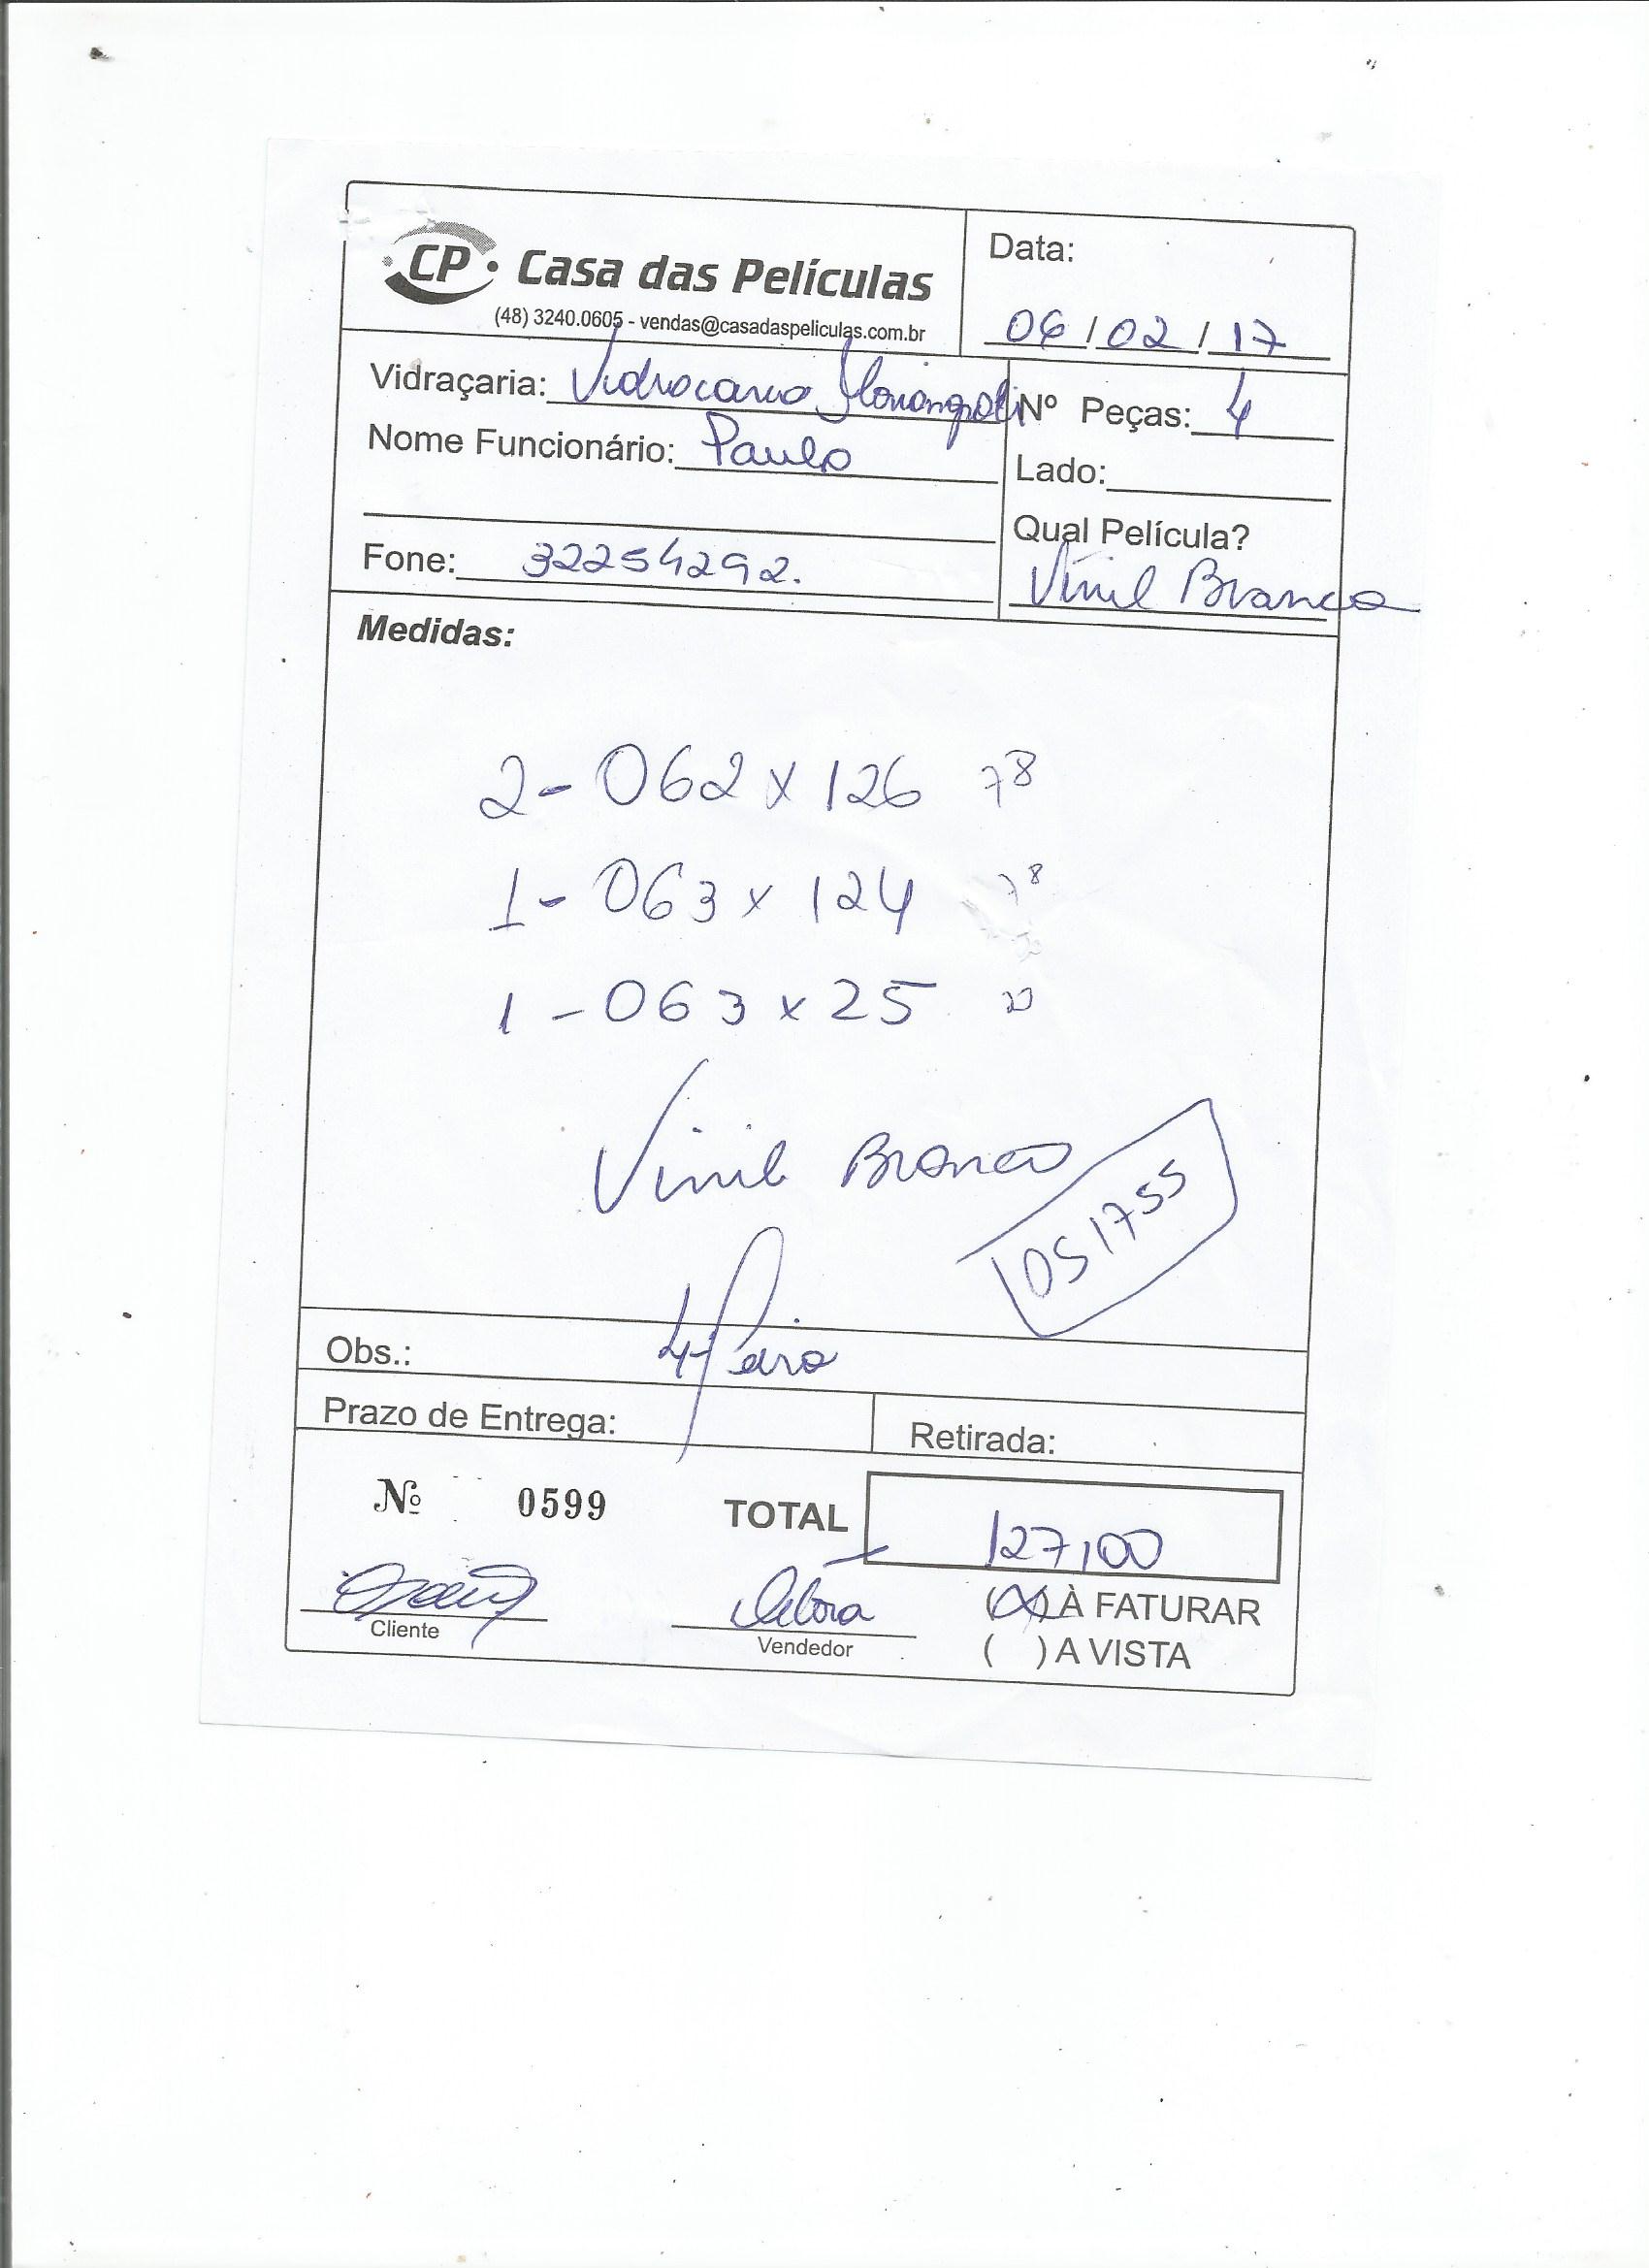 CP Casa das Películas
(48) 3240.0605 - vendas@casadaspeliculas.com.br
Data:
06/02/17
Vidraçaria: Vidrocario Florianopolis
Nº Peças: 4
Nome Funcionário: Paulo
Lado:
Qual Película?
Vinil Branco
Fone: 32254292.
Medidas:
2- 062 x 126 78
1- 063 x 124 78
1 - 063 x 25
Vinil Branco
OS 1755
Obs.:
Prazo de Entrega:
Retirada:
Nº 0599
TOTAL 127,00
Débora
Cliente
Vendedor
(X) À FATURAR
( ) A VISTA